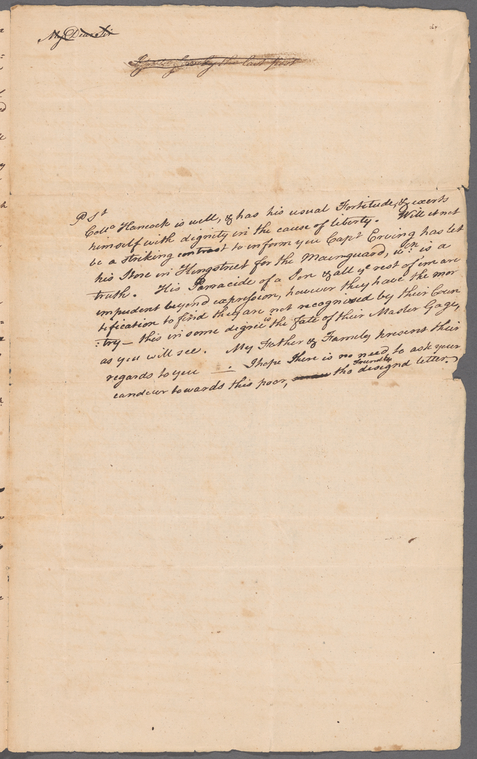 My Dear Sir
by the last post
P St
Collo Hancock is well, & has his usual Fortitude, & exerts
himself with dignity in the cause of liberty. Will it not
be a striking contrast to inform you Capt Erving has let
his Store in Kingstreet for the Mainguard, wch is a
truth. His Parracide of a Son & all ye rest of em are
impudent beyond expression, however they have the mor
:tification to find they are not recognised by their Coun
:try — this in some degree the fate of their Master Gage,
as you will see. My Father & Family present their
regards to you — . I hope there is no need to ask your
candour towards this poor, tho friendly designd letter.